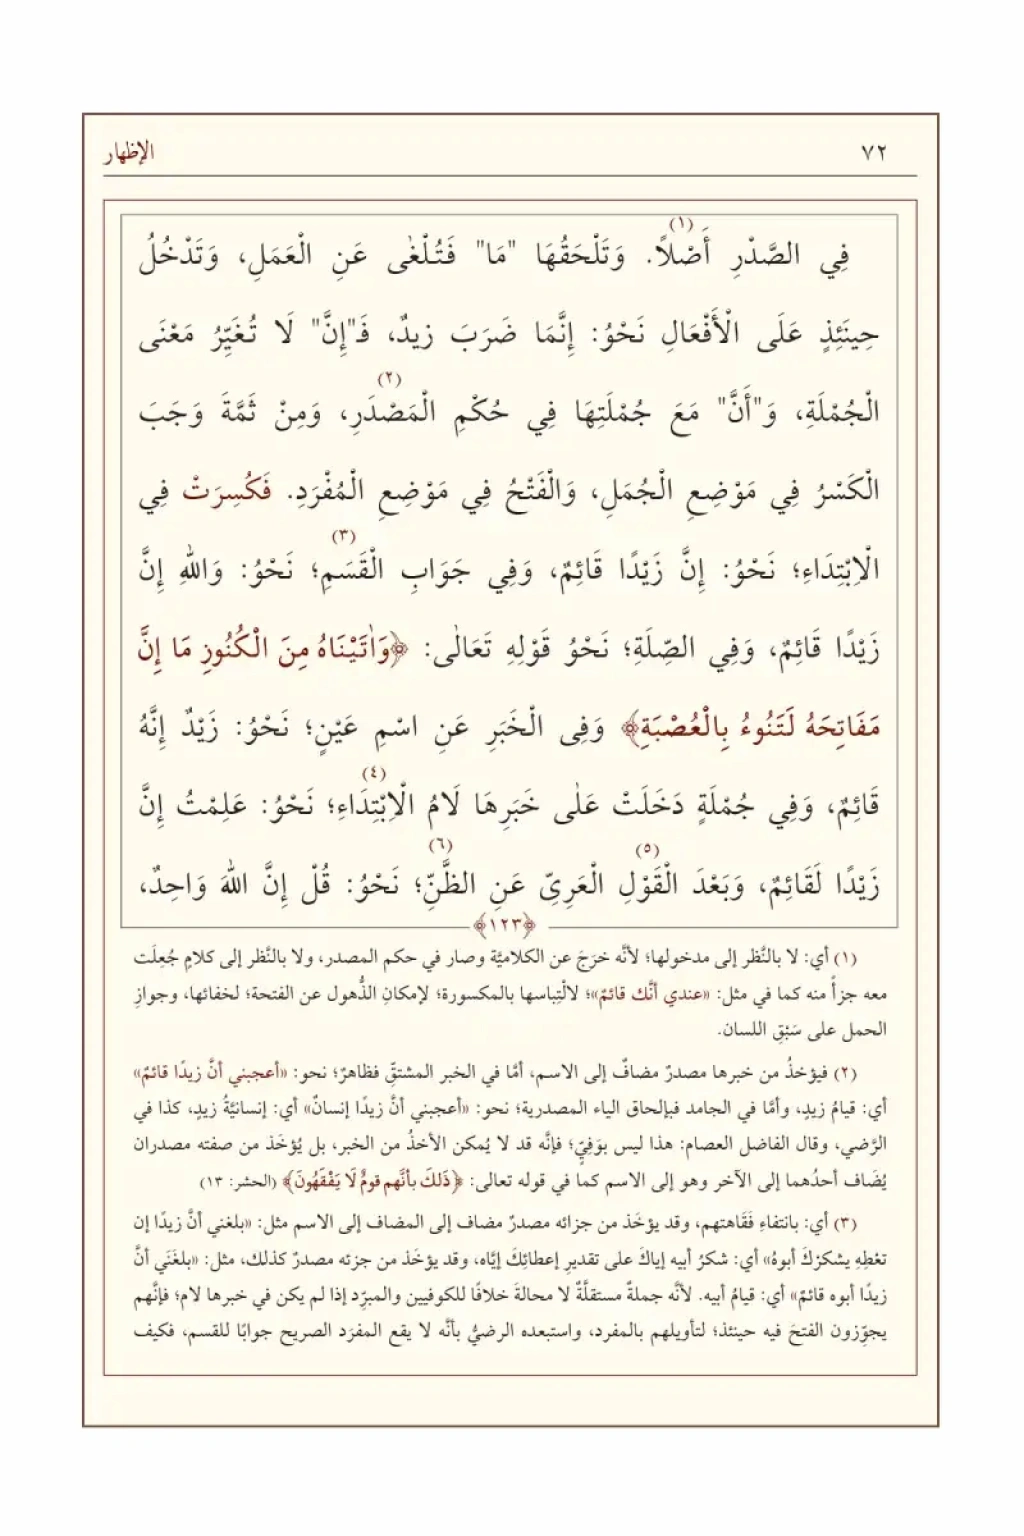 ٧٢ الإظهار
فِي الصَّدْرِ أَصْلاً(١). وَتَلْحَقُهَا "مَا" فَتُلْغٰى عَنِ الْعَمَلِ، وَتَدْخُلُ
حِينَئِذٍ عَلَى الْأَفْعَالِ نَحْوُ: إِنَّمَا ضَرَبَ زيدٌ، فَـ"إِنَّ" لَا تُغَيِّرُ مَعْنَى
الْجُمْلَةِ، وَ"أَنَّ" مَعَ جُمْلَتِهَا فِي حُكْمِ الْمَصْدَرِ(٢)، وَمِنْ ثَمَّةَ وَجَبَ
الْكَسْرُ فِي مَوْضِعِ الْجُمَلِ، وَالْفَتْحُ فِي مَوْضِعِ الْمُفْرَدِ. فَكُسِرَتْ فِي
الْاِبْتِدَاءِ؛ نَحْوُ: إِنَّ زَيْدًا قَائِمٌ، وَفِي جَوَابِ الْقَسَمِ(٣)؛ نَحْوُ: وَاللهِ إِنَّ
زَيْدًا قَائِمٌ، وَفِي الصِّلَةِ؛ نَحْوُ قَوْلِهِ تَعَالٰى: ﴿وَاٰتَيْنَاهُ مِنَ الْكُنُوزِ مَا إِنَّ
مَفَاتِحَهُ لَتَنُوءُ بِالْعُصْبَةِ﴾ وَفِى الْخَبَرِ عَنِ اسْمِ عَيْنٍ؛ نَحْوُ: زَيْدٌ إِنَّهُ
قَائِمٌ، وَفِي جُمْلَةٍ دَخَلَتْ عَلٰى خَبَرِهَا لَامُ الْاِبْتِدَاءِ(٤)؛ نَحْوُ: عَلِمْتُ إِنَّ
زَيْدًا لَقَائِمٌ، وَبَعْدَ الْقَوْلِ(٥) الْعَرِيّ عَنِ الظَّنِّ(٦)؛ نَحْوُ: قُلْ إِنَّ اللهَ وَاحِدٌ،
﴿١٢٣﴾
(١) أي: لا بالنَّظر إلى مدخولها؛ لأنَّه خرَجَ عن الكلاميَّة وصار في حكم المصدر، ولا بالنَّظر إلى كلامٍ جُعِلَت
معه جزأً منه كما في مثل: «عندي أنَّك قائمٌ»؛ لالْتِباسها بالمكسورة؛ لإمكانِ الذُّهول عن الفتحة؛ لخفائها، وجوازِ
الحمل على سَبْقِ اللسان.
(٢) فيؤخذُ من خبرها مصدرٌ مضافٌ إلى الاسم، أمَّا في الخبر المشتقِّ فظاهرٌ؛ نحو: «أعجبني أنَّ زيدًا قائمٌ»
أي: قيامُ زيدٍ، وأمَّا في الجامد فبإلحاق الياء المصدرية؛ نحو: «أعجبني أنَّ زيدًا إنسانٌ» أي: إنسانيَّةُ زيدٍ، كذا في
الرَّضي، وقال الفاضل العصام: هذا ليس بوَفِيٍّ؛ فإنَّه قد لا يُمكن الأخذُ من الخبر، بل يُؤخَذ من صفته مصدران
يُضَاف أحدُهما إلى الآخر وهو إلى الاسم كما في قوله تعالى: ﴿ذَلكَ بأنَّهم قومٌ لَا يَفْقَهُونَ﴾ (الحشر: ١٣)
(٣) أي: بانتفاءِ فَقَاهتهم، وقد يؤخَذ من جزائه مصدرٌ مضاف إلى المضاف إلى الاسم مثل: «بلغني أنَّ زيدًا إن
تعْطِهِ يشكرْكَ أبوهُ» أي: شكرُ أبيه إياكَ على تقديرِ إعطائِكَ إيَّاه، وقد يؤخَذ من جزئه مصدرٌ كذلك، مثل: «بلغَنَي أنَّ
زيدًا أبوه قائمٌ» أي: قيامُ أبيه. لأنَّه جملةٌ مستقلَّةٌ لا محالةَ خلافًا للكوفيين والمبرِّد إذا لم يكن في خبرها لام؛ فإنَّهم
يجوِّزون الفتحَ فيه حينئذ؛ لتأويلهم بالمفرد، واستبعده الرضيُّ بأنَّه لا يقع المفرَد الصريح جوابًا للقسم، فكيف